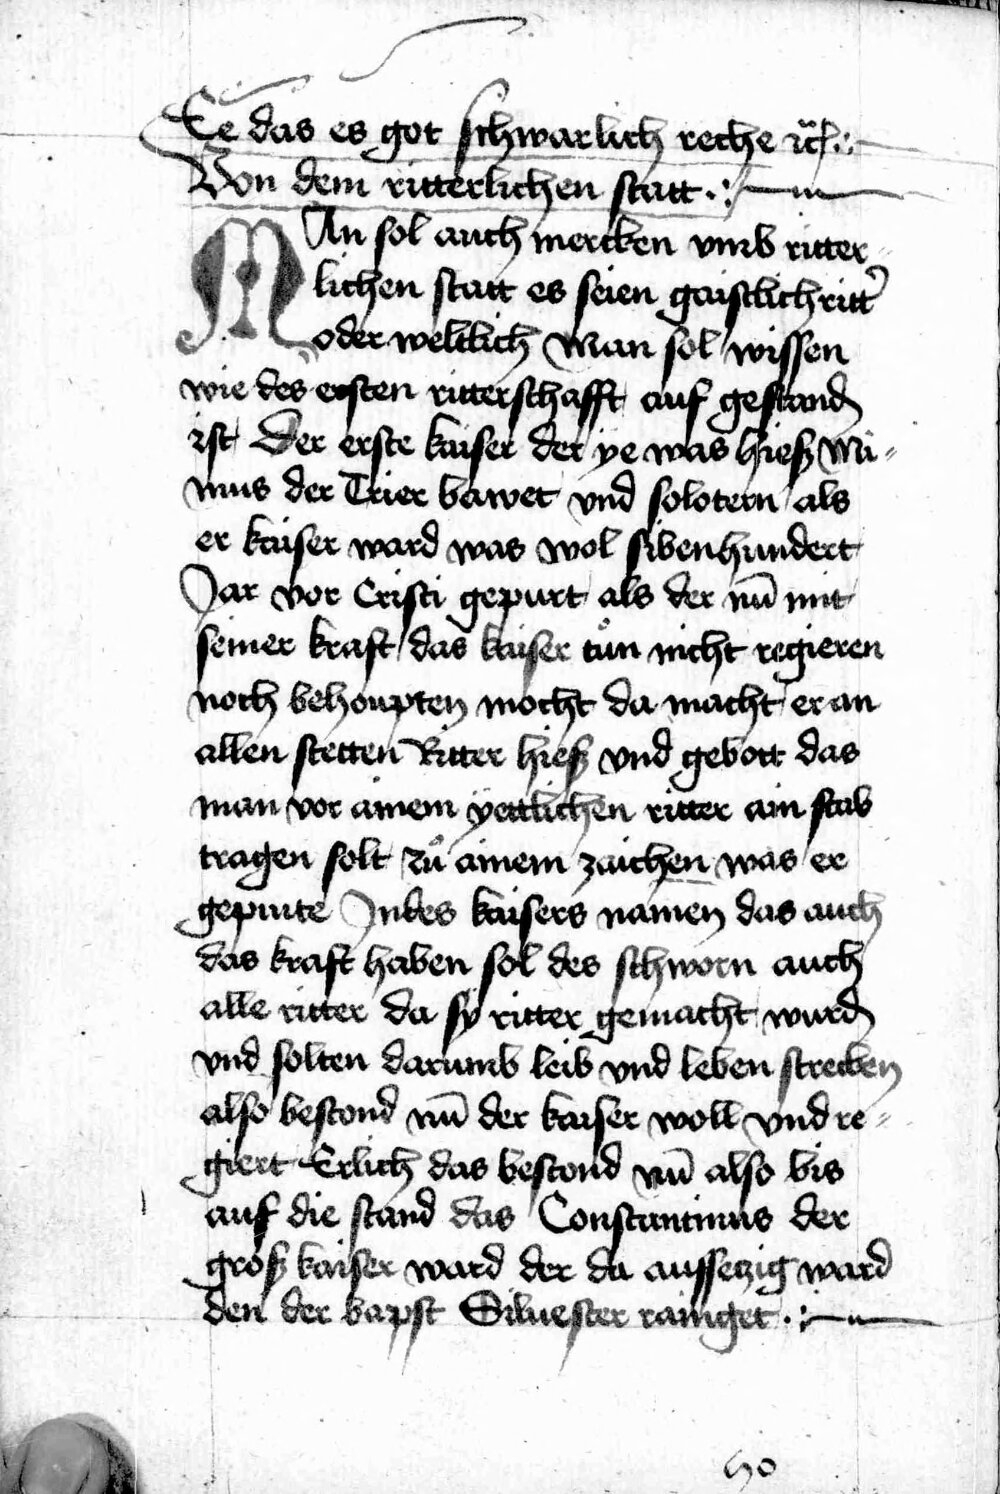 Ee das es got schwarlich reche ꝛc̃ :
Von dem ritterlichen statt ·:
MAn sol auch mercken vmb ritter„
lichen statt es seien gaistlich ritt͛
oder weltlich Man sol wissen
wie des ersten ritterschafft auf gestanđ
ist Der erste kaiser der ye was hiesz
mus der Trier bawet vnd solotern als
er kaiser ward was wol sibenhundert
Jar vor Cristi gepurt als der nū mit
seiner kraft das kaiser tůn nicht regieren
noch behoupten mocht da macht er an
allen stetten Ritter hiesz vnd gebott das
man vor ainem yettlichen ritter ain stab
tragen solt zů ainem zaichen was er
gepiute Jn des kaisers namen das auch
das kraft haben sol des schworn auch
alle ritter da sÿ ritter gemacht wurđ
vnd solten darumb leib vnd leben strecken
also bestond nū der kaiser woll vnd re„
giert Erlich das bestond nū also bis
auf die stand das Constantinus der
grosz kaiser ward der da aussetzig ward
den der bapst Siluester rainget ·: